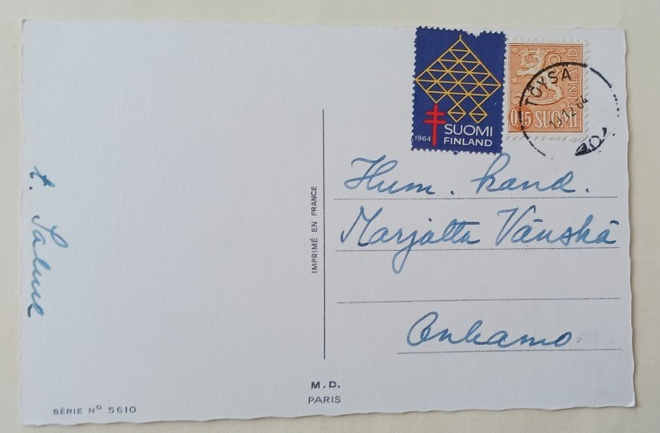 1964
SUOMI
FINLAND
0,15 SUOMI
FINLAND
TÖYSÄ
Hum. kand.
Marjatta Vänskä
Onkamo
t. Salme
IMPRIMÉ EN FRANCE
M.D.
PARIS
SÉRIE Nº 5610